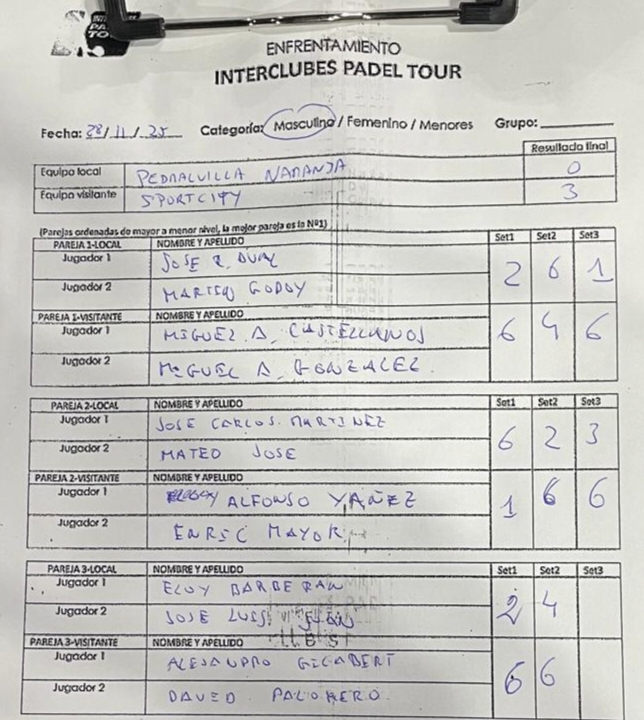 ENFRENTAMIENTO
INTERCLUBES PADEL TOUR
Fecha: 28/11/25 Categoría: Masculino / Femenino / Menores Grupo:
Resultado final
Equipo local PEDRALVILLA NARANJA 0
Equipo visitante SPORTCITY 3
(Parejas ordenadas de mayor a menor nivel, la mejor pareja es la Nº1)
PAREJA 1-LOCAL NOMBRE Y APELLIDO Set1 Set2 Set3
Jugador 1 JOSE R. 2 6 1
Jugador 2 GODOY
PAREJA 1-VISITANTE NOMBRE Y APELLIDO 6 4 6
Jugador 1 MIGUEL A. CASTELLANOS
Jugador 2 MIGUEL A. GONZALEZ.
PAREJA 2-LOCAL NOMBRE Y APELLIDO Set1 Set2 Set3
Jugador 1 JOSE CARLOS MARTINEZ 6 2 3
Jugador 2 MATEO JOSE
PAREJA 2-VISITANTE NOMBRE Y APELLIDO 1 6 6
Jugador 1 ALFONSO YAÑEZ
Jugador 2 ENRIC MAYOR
PAREJA 3-LOCAL NOMBRE Y APELLIDO Set1 Set2 Set3
Jugador 1 ELOY BARBERAN 2 4
Jugador 2 JOSE LUIS
PAREJA 3-VISITANTE NOMBRE Y APELLIDO 6 6
Jugador 1 ALEJANDRO GILABERT
Jugador 2 DAVID PALOMERO